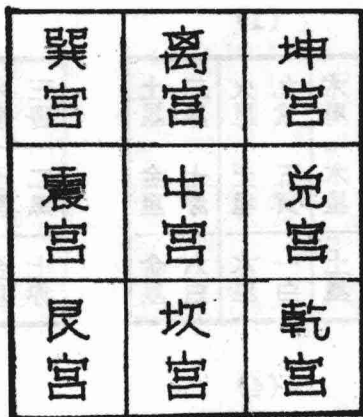 巽宫 离宫 坤宫
震宫 中宫 兑宫
艮宫 坎宫 乾宫